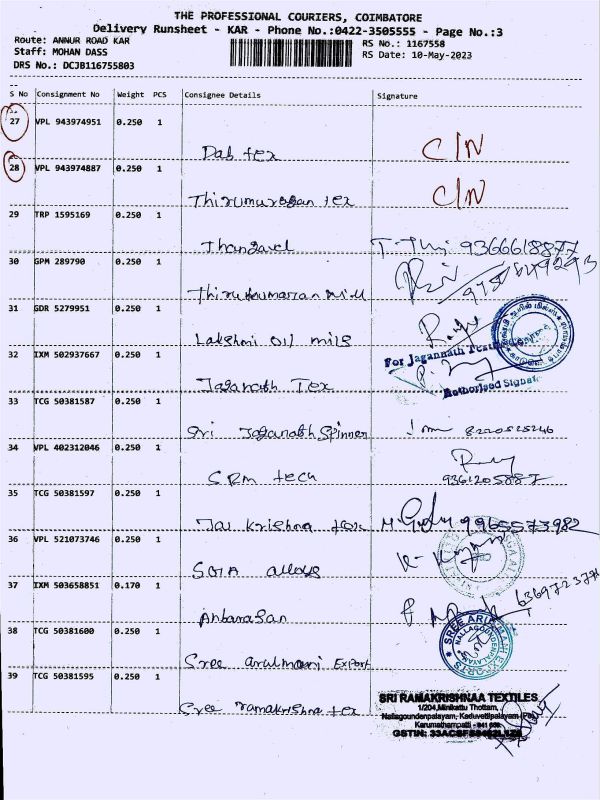 THE PROFESSIONAL COURIERS, COIMBATORE
Delivery Runsheet - KAR - Phone No.:0422-3505555 - Page No.:3
Route: ANNUR ROAD KAR
RS No.: 1167558
Staff: MOHAN DASS
RS Date: 10-May-2023
DRS No.: DCJB116755803
S No Consignment No Weight PCS Consignee Details Signature
27 VPL 943974951 0.250 1
Dab tex C/N
28 VPL 943974887 0.250 1
Thirumurugan tex C/N
29 TRP 1595169 0.250 1
Thangavel 9366618877
30 GPM 289790 0.250 1
Thirukumaran Mill
31 GDR 5279951 0.250 1
Lakshmi Oil mils
For Jagannath
32 IXM 502937667 0.250 1
Jaganath Tex
Authorised Signat
33 TCG 50381587 0.250 1
Sri Jaganath Spinner 8220525246
34 VPL 402312046 0.250 1
SRM tech 9361205887
35 TCG 50381597 0.250 1
Jai Krishna tex 9965573982
36 VPL 521073746 0.250 1
alloys
37 IXM 503658851 0.170 1
Anbarasan
38 TCG 50381600 0.250 1
SREE ARULMANI EXPORTS
NALLAGOUNDENPALAYAM
Sree arulmani Export
39 TCG 50381595 0.250 1
Sree ramakrishna tex
SRI RAMAKRISHNAA TEXTILES
1/204, Minikattu Thottam,
Nallagoundenpalayam, Kaduvettipalayam (Po)
Karumathampatti - 641 659.
GSTIN: